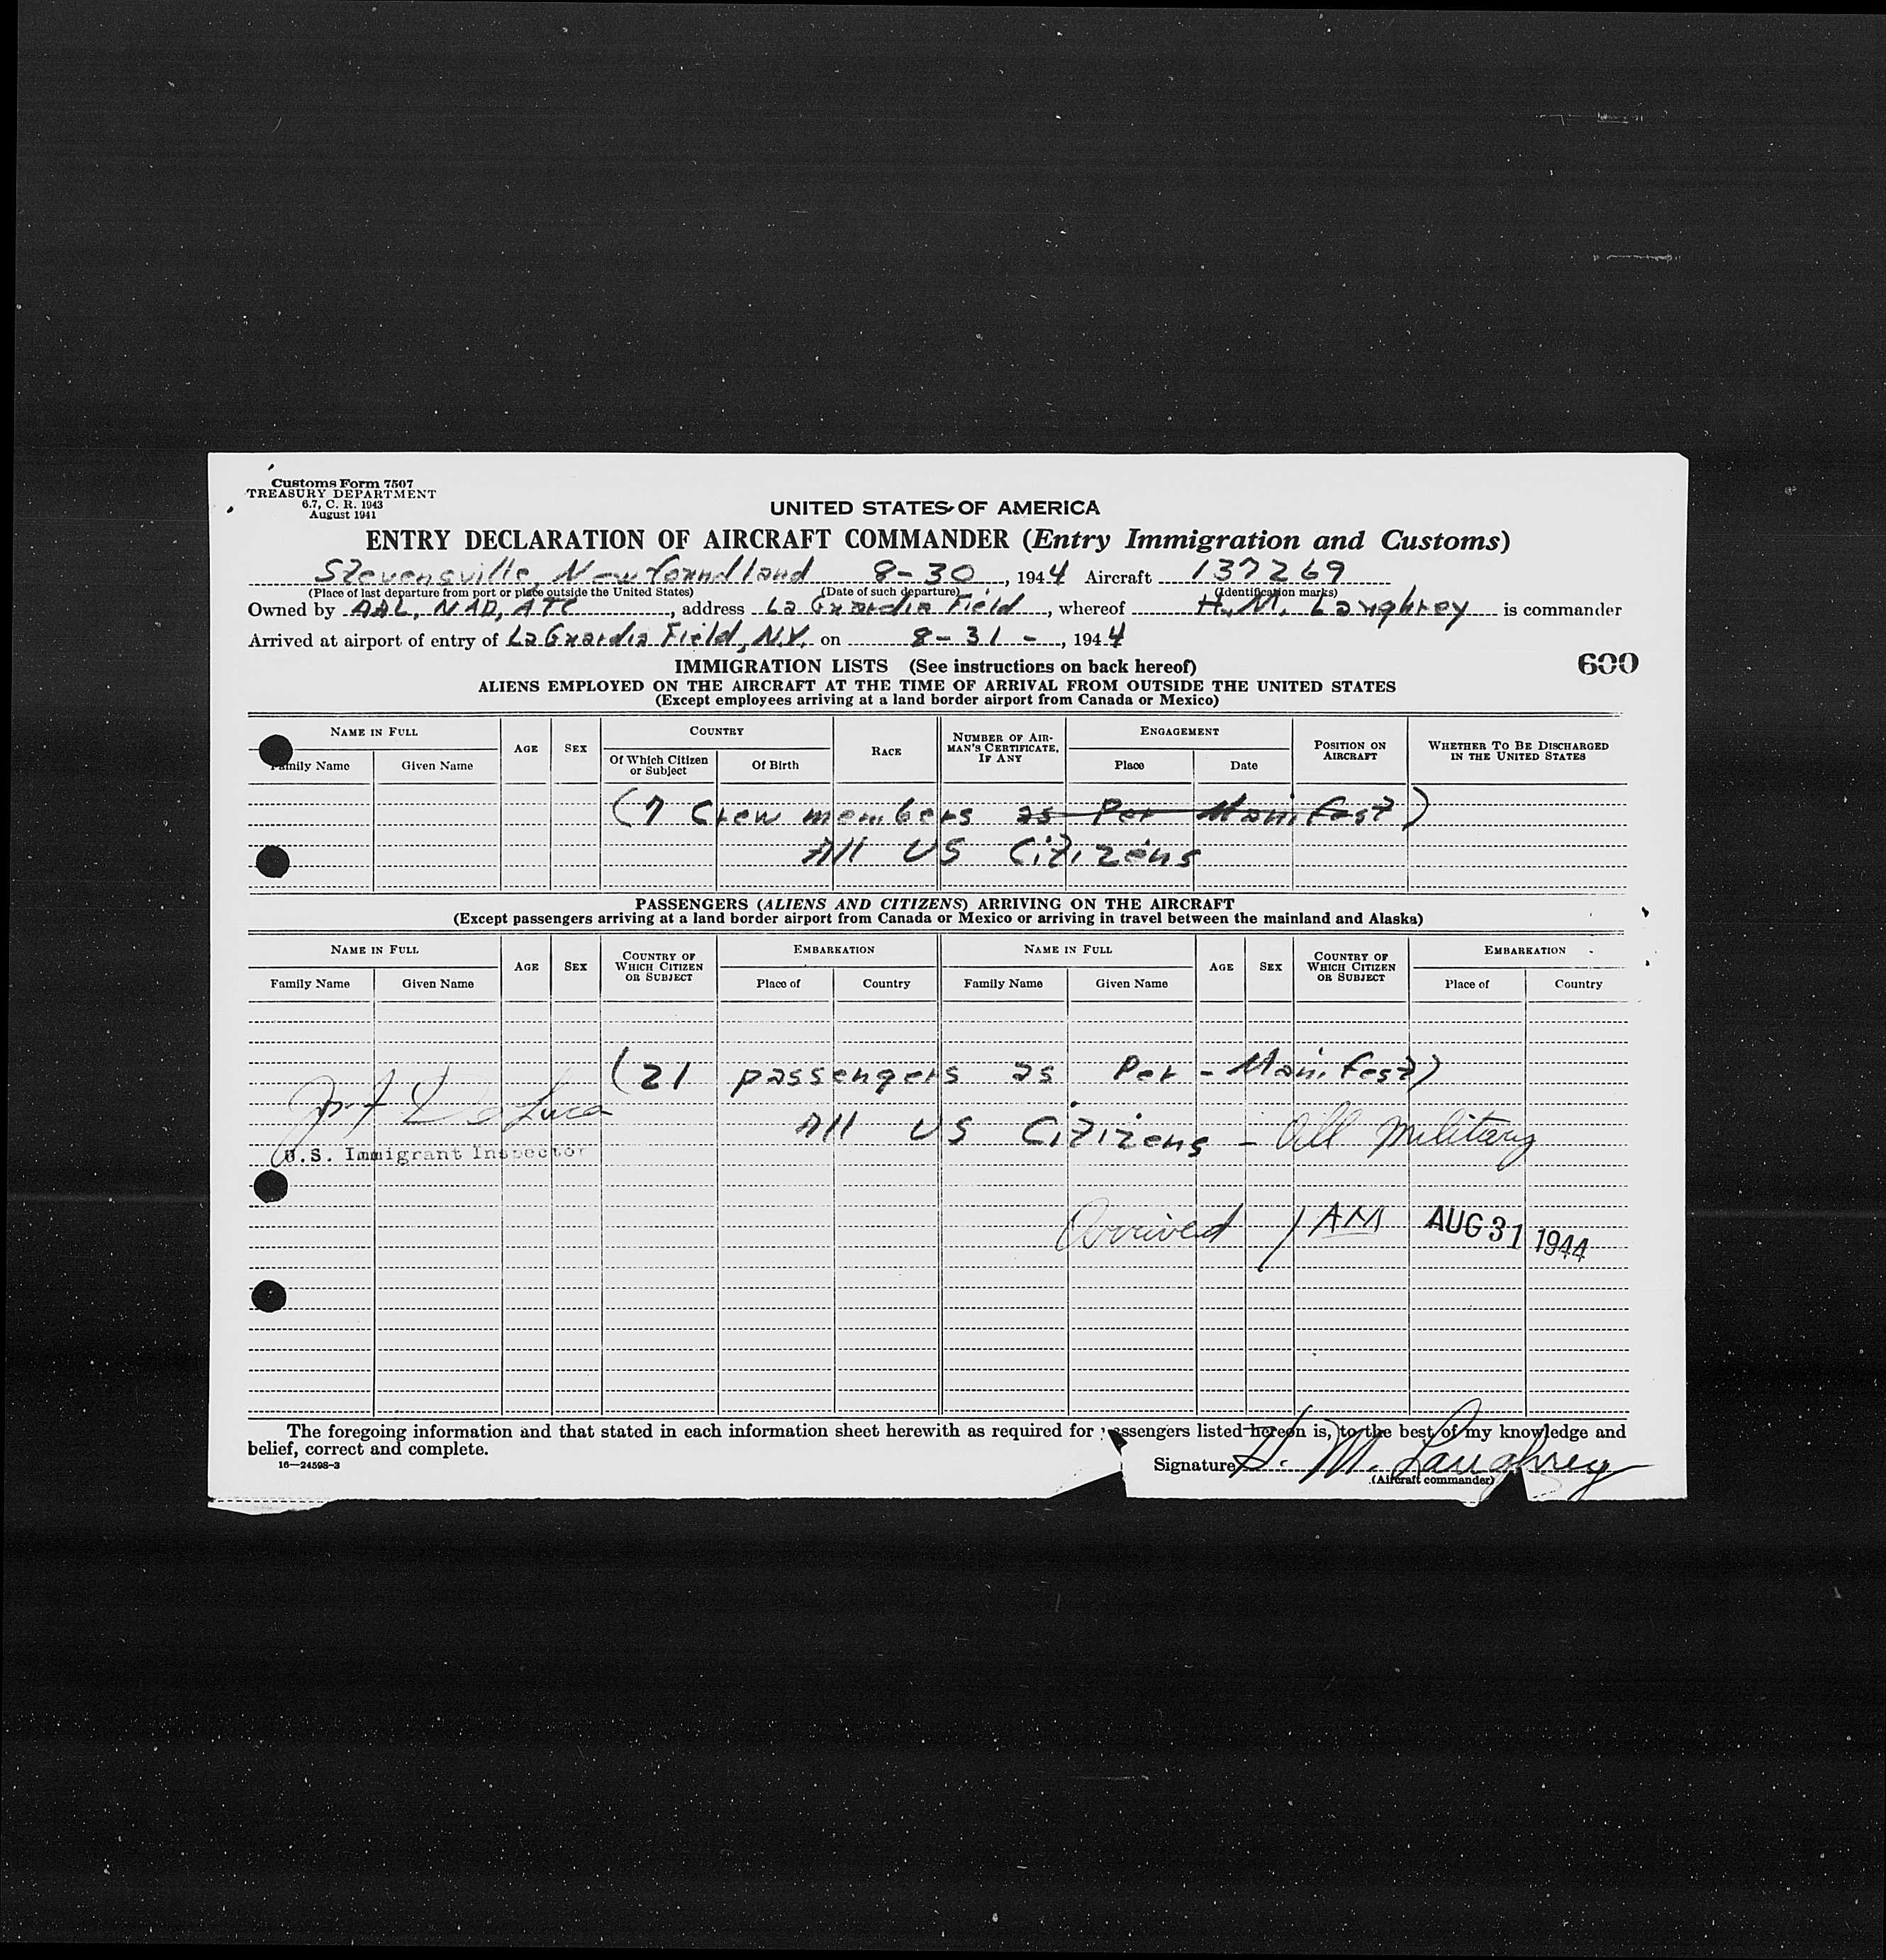 Customs Form 7507
TREASURY DEPARTMENT
6.7, C. R. 1943
August 1941
UNITED STATES OF AMERICA
ENTRY DECLARATION OF AIRCRAFT COMMANDER (Entry Immigration and Customs)
Stevensville, Newfoundland 8-30, 1944 Aircraft 137269
(Place of last departure from port or place outside the United States) (Date of such departure) (Identification marks)
Owned by AAL, NAD, ATC, address La Guardia Field, whereof H. M. Laughrey is commander
Arrived at airport of entry of La Guardia Field, N.Y. on 8-31-, 1944
IMMIGRATION LISTS (See instructions on back hereof)
600
ALIENS EMPLOYED ON THE AIRCRAFT AT THE TIME OF ARRIVAL FROM OUTSIDE THE UNITED STATES
(Except employees arriving at a land border airport from Canada or Mexico)
NAME IN FULL AGE SEX COUNTRY RACE NUMBER OF AIRMAN'S CERTIFICATE, IF ANY ENGAGEMENT POSITION ON AIRCRAFT WHETHER TO BE DISCHARGED IN THE UNITED STATES
Family Name Given Name Of Which Citizen or Subject Of Birth Place Date
(7 Crew members as Per Manifest)
All US Citizens
PASSENGERS (ALIENS AND CITIZENS) ARRIVING ON THE AIRCRAFT
(Except passengers arriving at a land border airport from Canada or Mexico or arriving in travel between the mainland and Alaska)
NAME IN FULL AGE SEX COUNTRY OF WHICH CITIZEN OR SUBJECT EMBARKATION NAME IN FULL AGE SEX COUNTRY OF WHICH CITIZEN OR SUBJECT EMBARKATION
Family Name Given Name Place of Country Family Name Given Name Place of Country
(21 passengers as Per - Manifest)
De Luca
All US Citizens - All Military
U.S. Immigrant Inspector
Arrived 1 AM AUG 31 1944
The foregoing information and that stated in each information sheet herewith as required for passengers listed hereon is, to the best of my knowledge and
belief, correct and complete.
16—24598-3
Signature H. M. Laughrey
(Aircraft commander)